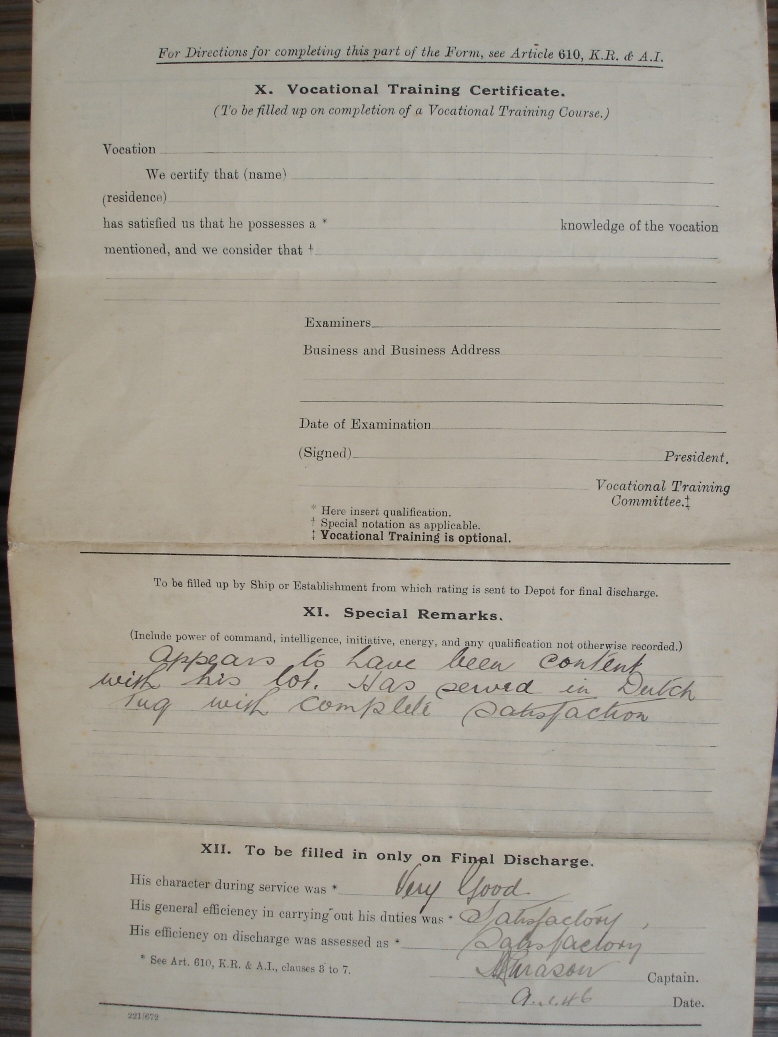 For Directions for completing this part of the Form, see Article 610, K.R. & A.I.
X. Vocational Training Certificate.
(To be filled up on completion of a Vocational Training Course.)
Vocation
We certify that (name)
(residence)
has satisfied us that he possesses a * knowledge of the vocation
mentioned, and we consider that †
Examiners
Business and Business Address
Date of Examination
(Signed) President.
Vocational Training
Committee.‡
* Here insert qualification.
† Special notation as applicable.
‡ Vocational Training is optional.
To be filled up by Ship or Establishment from which rating is sent to Depot for final discharge.
XI. Special Remarks.
(Include power of command, intelligence, initiative, energy, and any qualification not otherwise recorded.)
Appears to have been content
with his lot. Has served in Dutch
Tug with complete satisfaction
XII. To be filled in only on Final Discharge.
His character during service was * Very Good.
His general efficiency in carrying out his duties was * Satisfactory.
His efficiency on discharge was assessed as * Satisfactory
* See Art. 610, K.R. & A.I., clauses 3 to 7.
Captain.
Date.